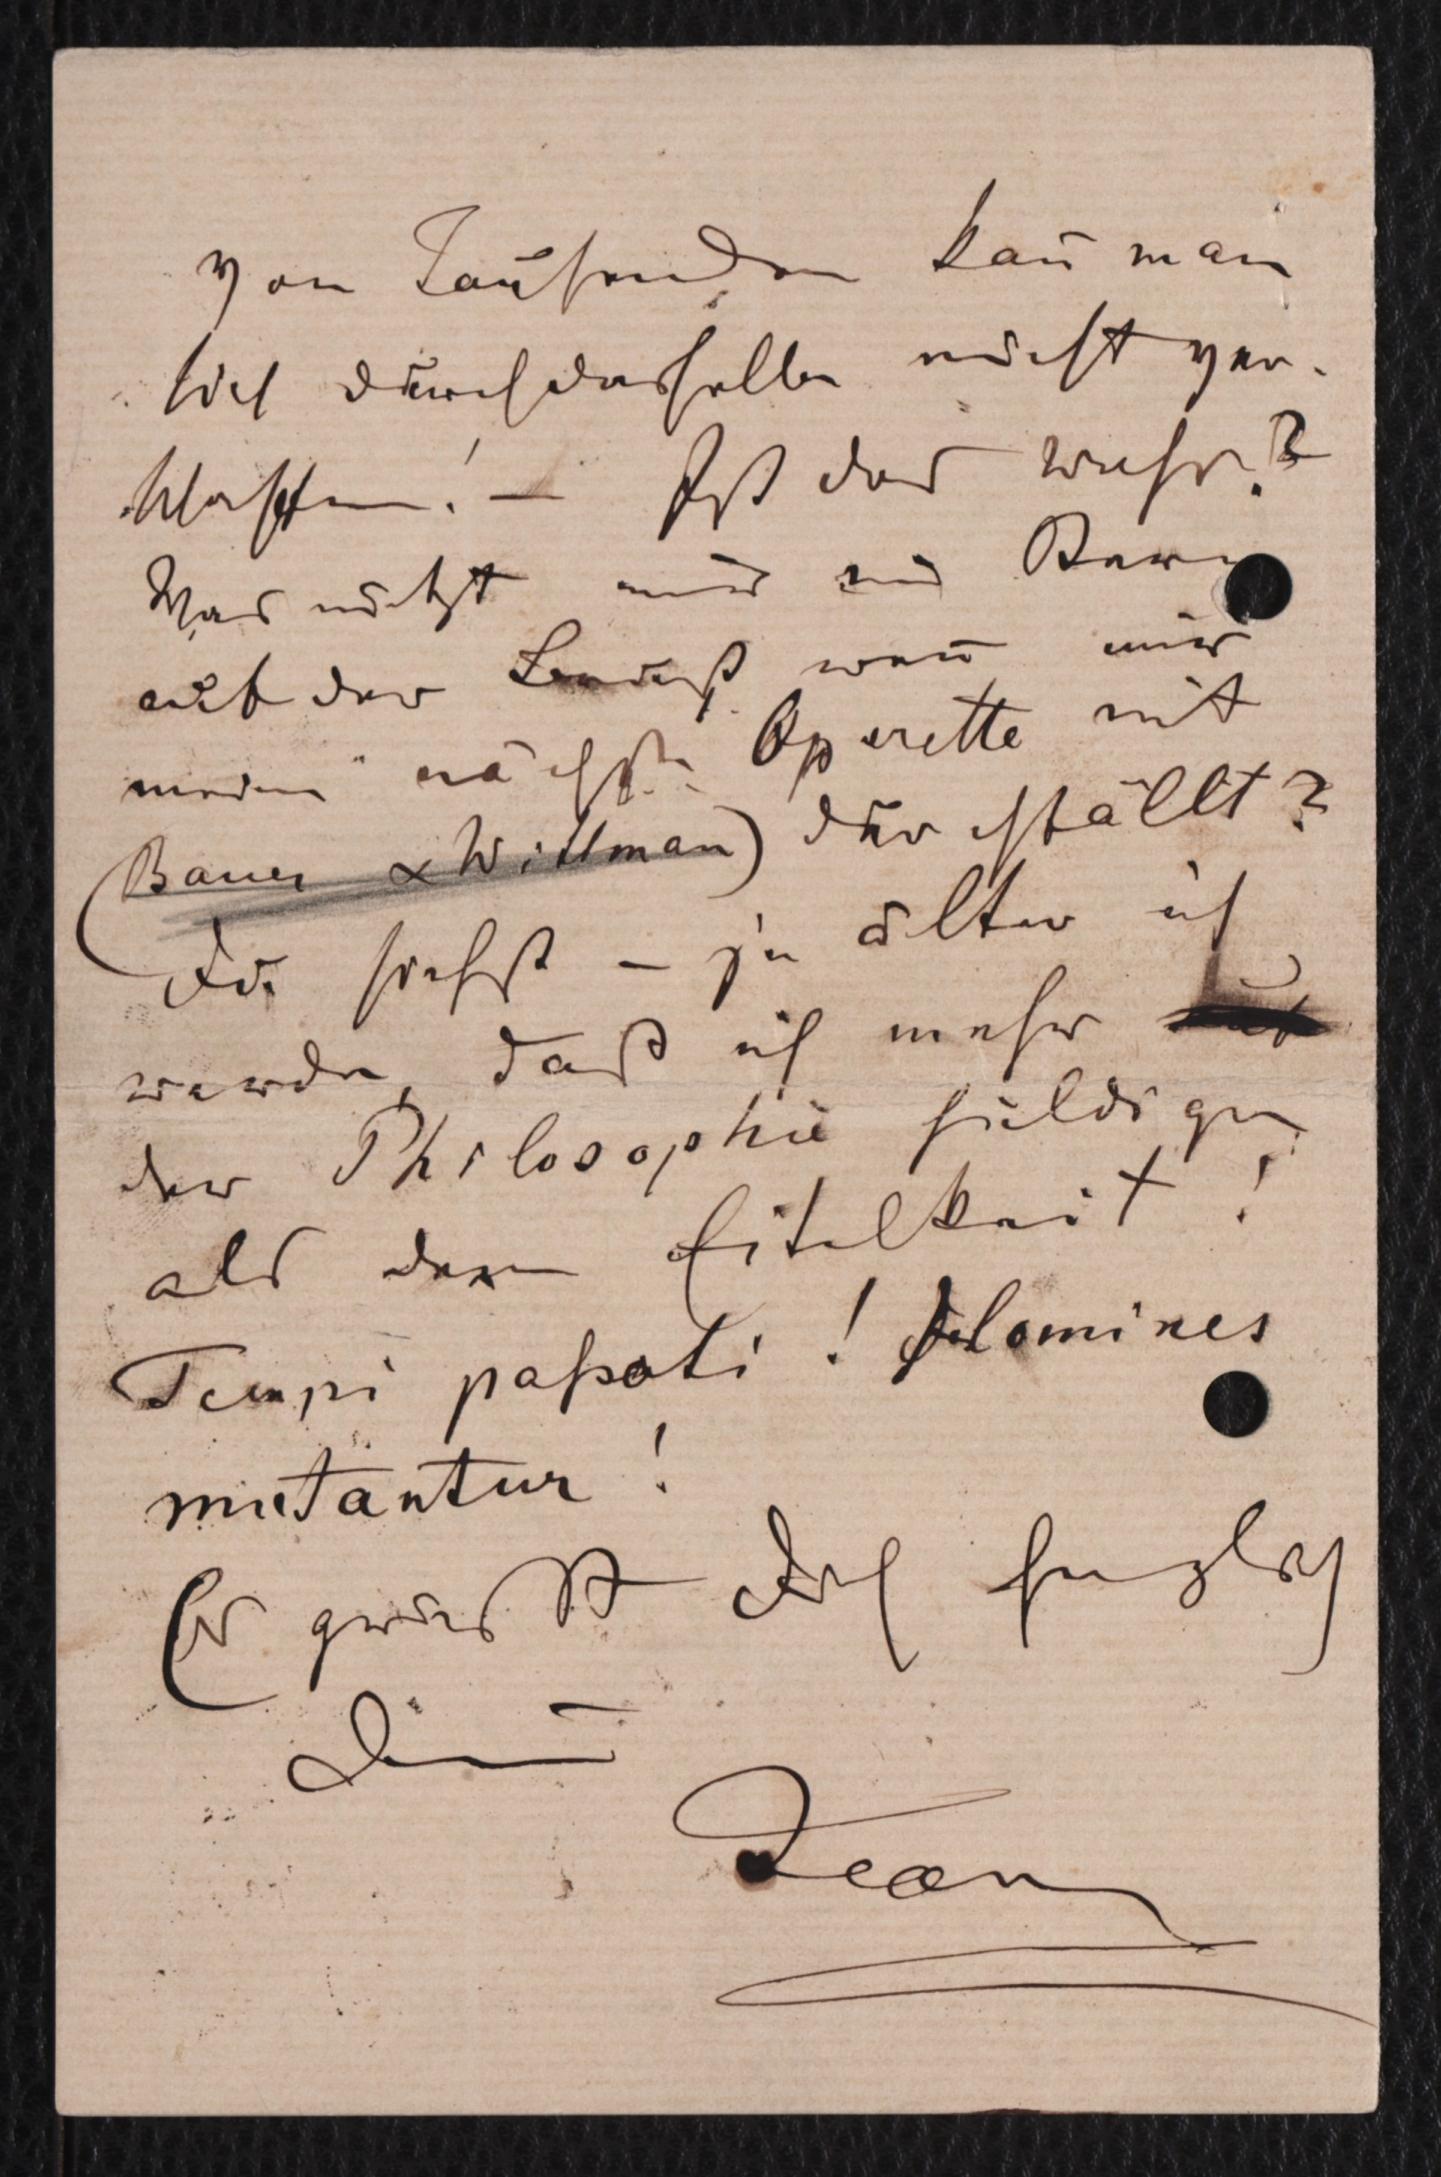 von Tausenden kañ man
sich durch dasselbe nicht ver-
! — Ist das wahr?
Was nützt mir ein
auf der weñ mir
meine nächste Operette mit
(Bauer & Wittmañ) durchfällt?
Du siehst – je älter ich
werde, daß ich mehr
der Philosophie huldige
als der Eitelkeit!
Tempi passati! Homines
mutantur!
Es grüsst Dich herzlich
Dein
Jean